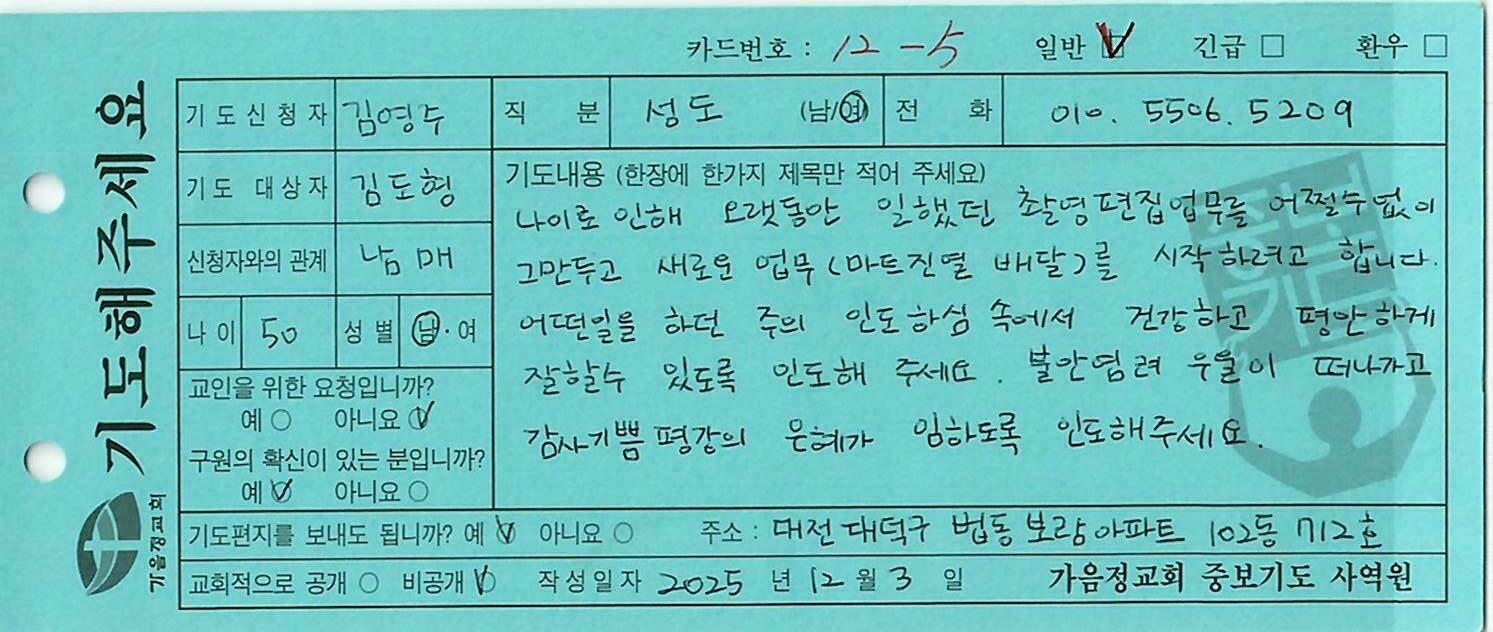 기도해주세요
가음정교회
카드번호 : 12-5 일반 ☑ 긴급 □ 환우 □
기도신청자 김영주 직 분 성도 (남/여) 전 화 010. 5506. 5209
기도 대상자 김도형
신청자와의 관계 남매
나 이 50 성 별 남·여
교인을 위한 요청입니까?
예 ○ 아니요 ✓
구원의 확신이 있는 분입니까?
예 ✓ 아니요 ○
기도내용 (한장에 한가지 제목만 적어 주세요)
나이로 인해 오랫동안 일했던 촬영편집업무를 어쩔수없이
그만두고 새로운 업무(마트진열 배달)를 시작하려고 합니다.
어떤일을 하던 주의 인도하심 속에서 건강하고 평안하게
잘할수 있도록 인도해 주세요. 불안염려 우울이 떠나가고
감사기쁨평강의 은혜가 임하도록 인도해주세요.
기도편지를 보내도 됩니까? 예 ✓ 아니요 ○ 주소 : 대전 대덕구 법동 보람아파트 102동 712호
교회적으로 공개 ○ 비공개 ✓ 작성일자 2025 년 12 월 3 일 가음정교회 중보기도 사역원